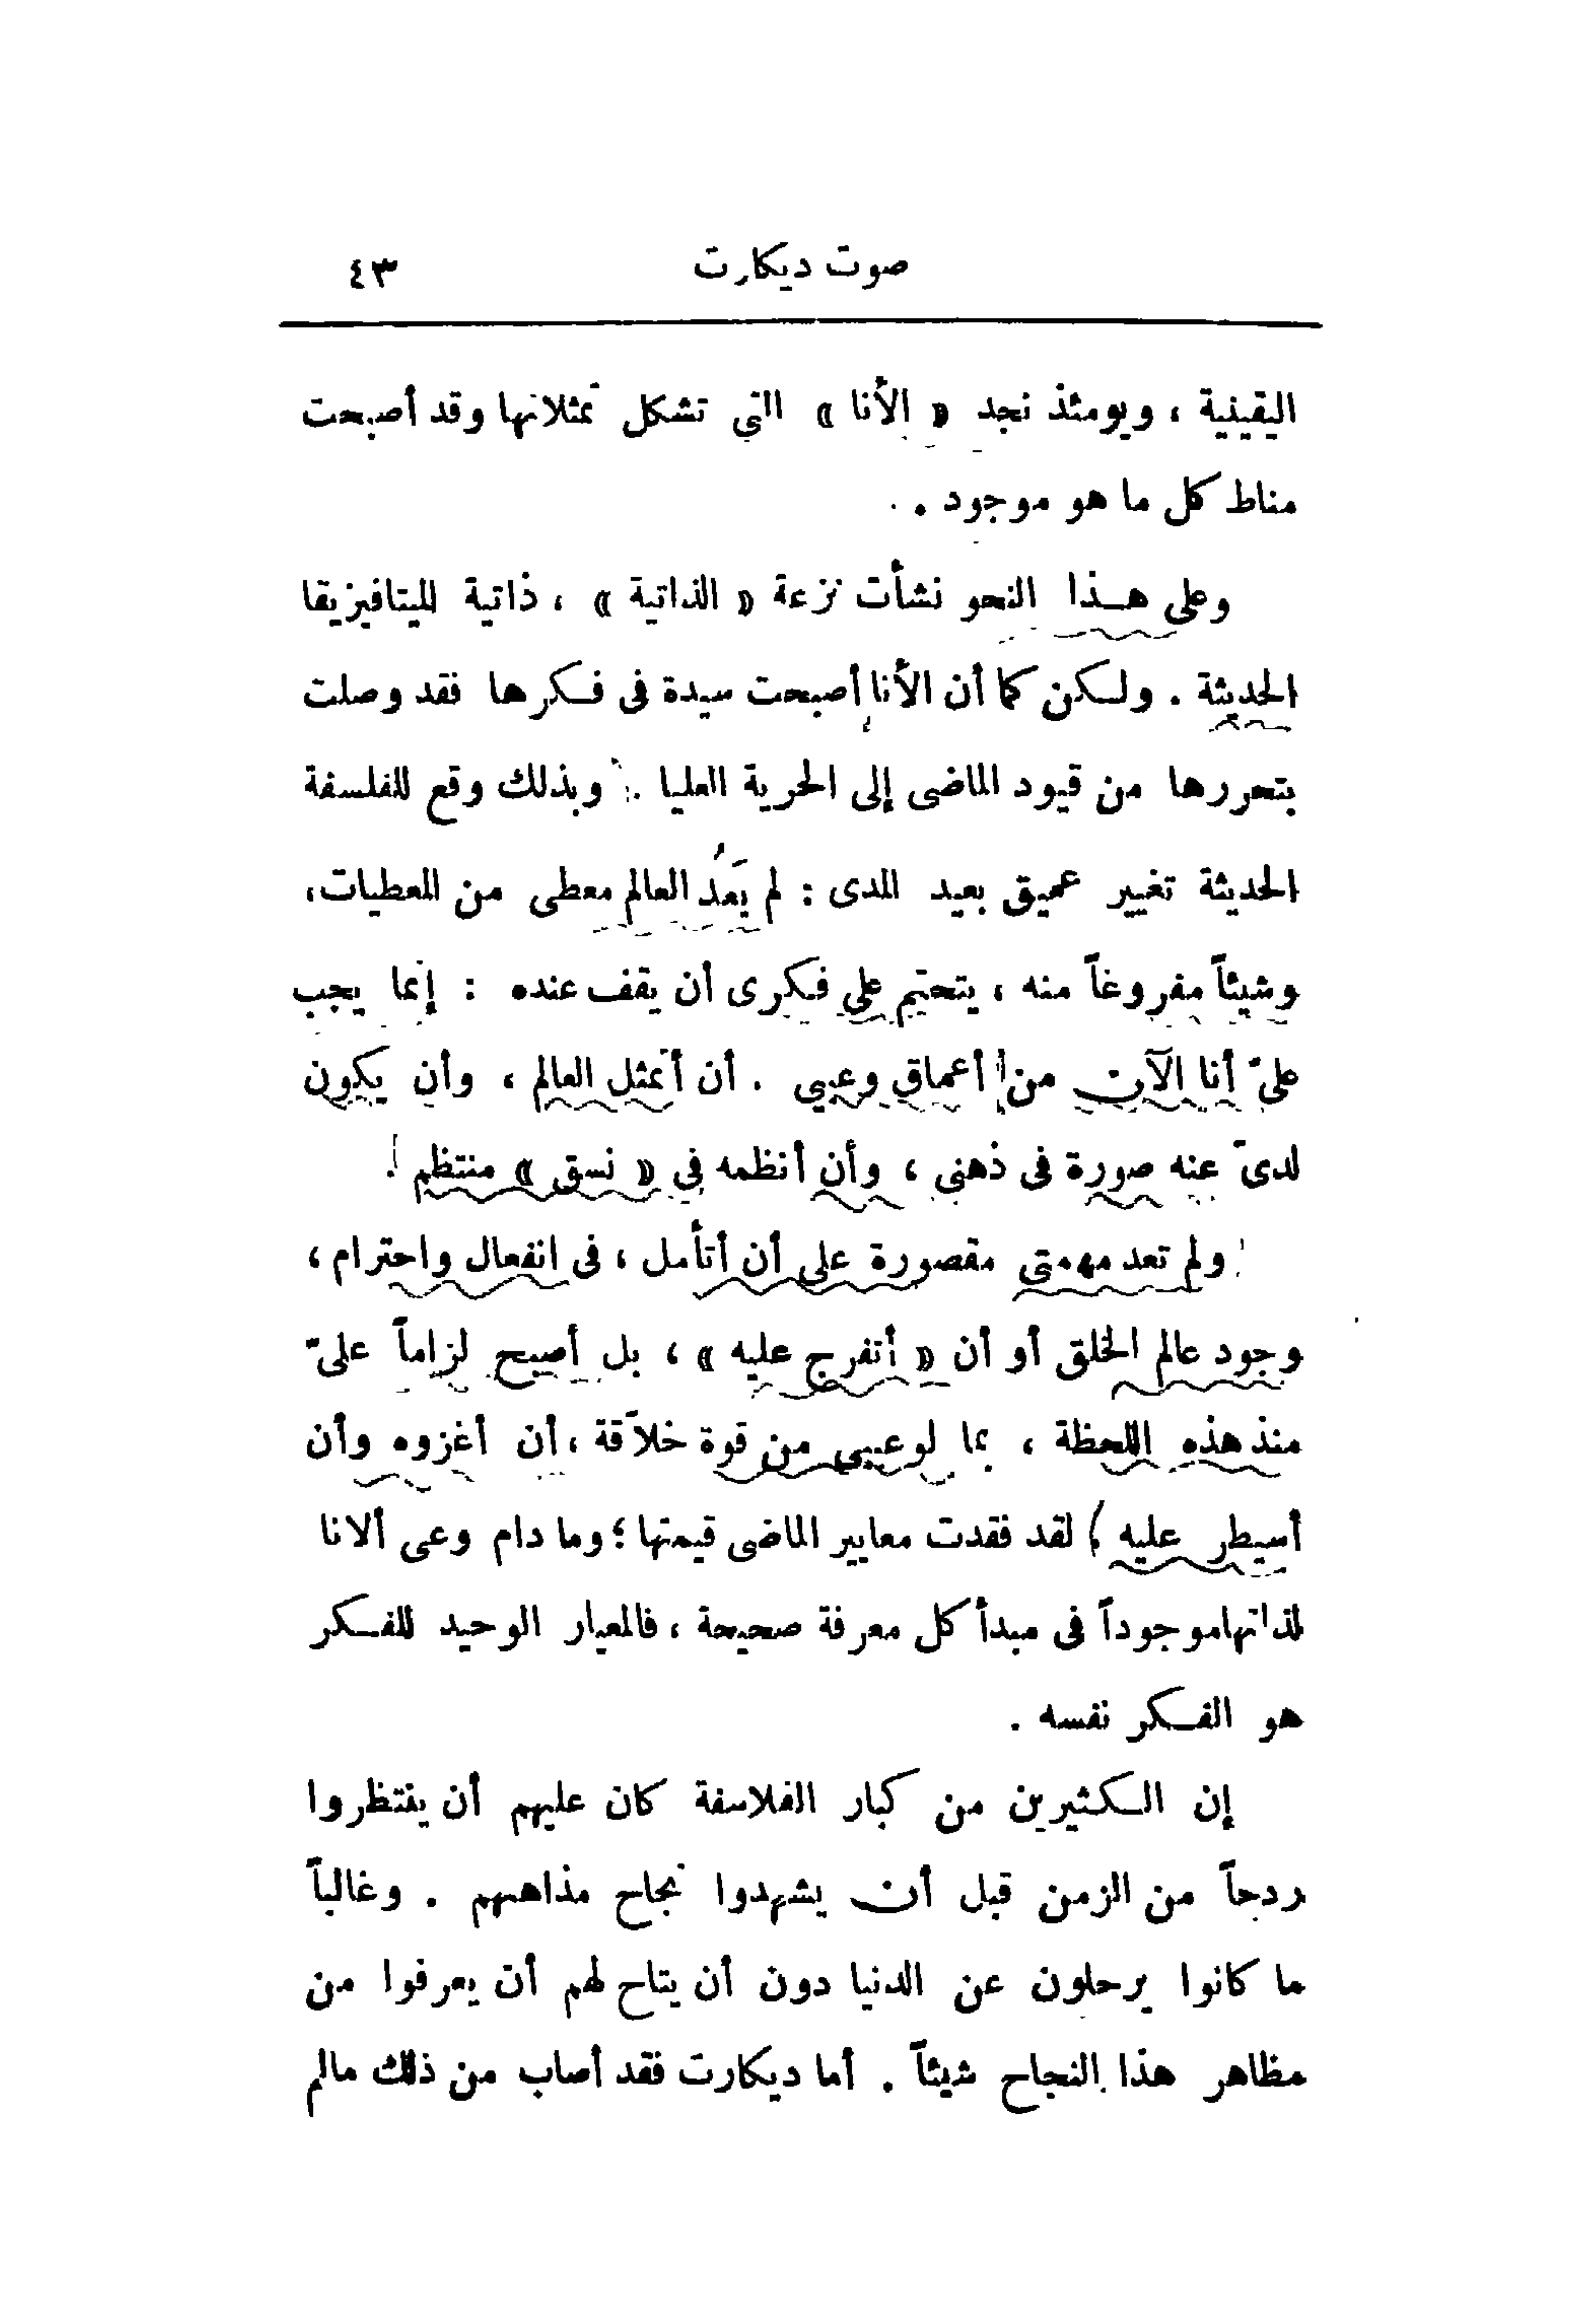 صوت ديكارت ٤٣
اليقينية ، ويومئذ نجد « الأنا » التي تشكل تمثلاتها وقد أصبحت
مناط كل ما هو موجود .
وعلى هـذا النحو نشأت نزعة « الذاتية » ، ذاتية الميتافيزيقا
الحديثة . ولـكن كما أن الأنا أصبحت سيدة فى فـكرها فقد وصلت
بتحررها من قيود الماضى إلى الحرية العليا . وبذلك وقع للفلسفة
الحديثة تغيير عميق بعيد المدى : لم يَعُد العالم معطى من المعطيات،
وشيئاً مفروغاً منه ، يتحتم على فـكرى أن يقف عنده : إنما يجب
علىّ أنا الآن من أعماق وعيي . أن أتمثل العالم ، وأن يكون
لدىّ عنه صورة فى ذهنى ، وأن أنظمه في « نسق » منتظم .
ولم تعد مهمتى مقصورة على أن أتأمل ، فى انفعال واحترام ،
وجود عالم الخلق أو أن « أتفرج عليه » ، بل أصبح لزاماً علىّ
منذ هذه اللحظة ، بما لوعيي من قوة خلاّقة ، أن أغزوه وأن
أسيطر عليه ) لقد فقدت معايير الماضى قيمتها ؛ وما دام وعى ألانا
لذاتها موجوداً فى مبدأ كل معرفة صحيحة ، فالمعيار الوحيد للفـكر
هو الفـكر نفسه .
إن الـكثيرين من كبار الفلاسفة كان عليهم أن ينتظروا
ردحاً من الزمن قبل أن يشهدوا نجاح مذاهبهم . وغالباً
ما كانوا يرحلون عن الدنيا دون أن يتاح لهم أن يعرفوا من
مظاهر هذا النجاح شيئاً . أما ديكارت فقد أصاب من ذلك مالم